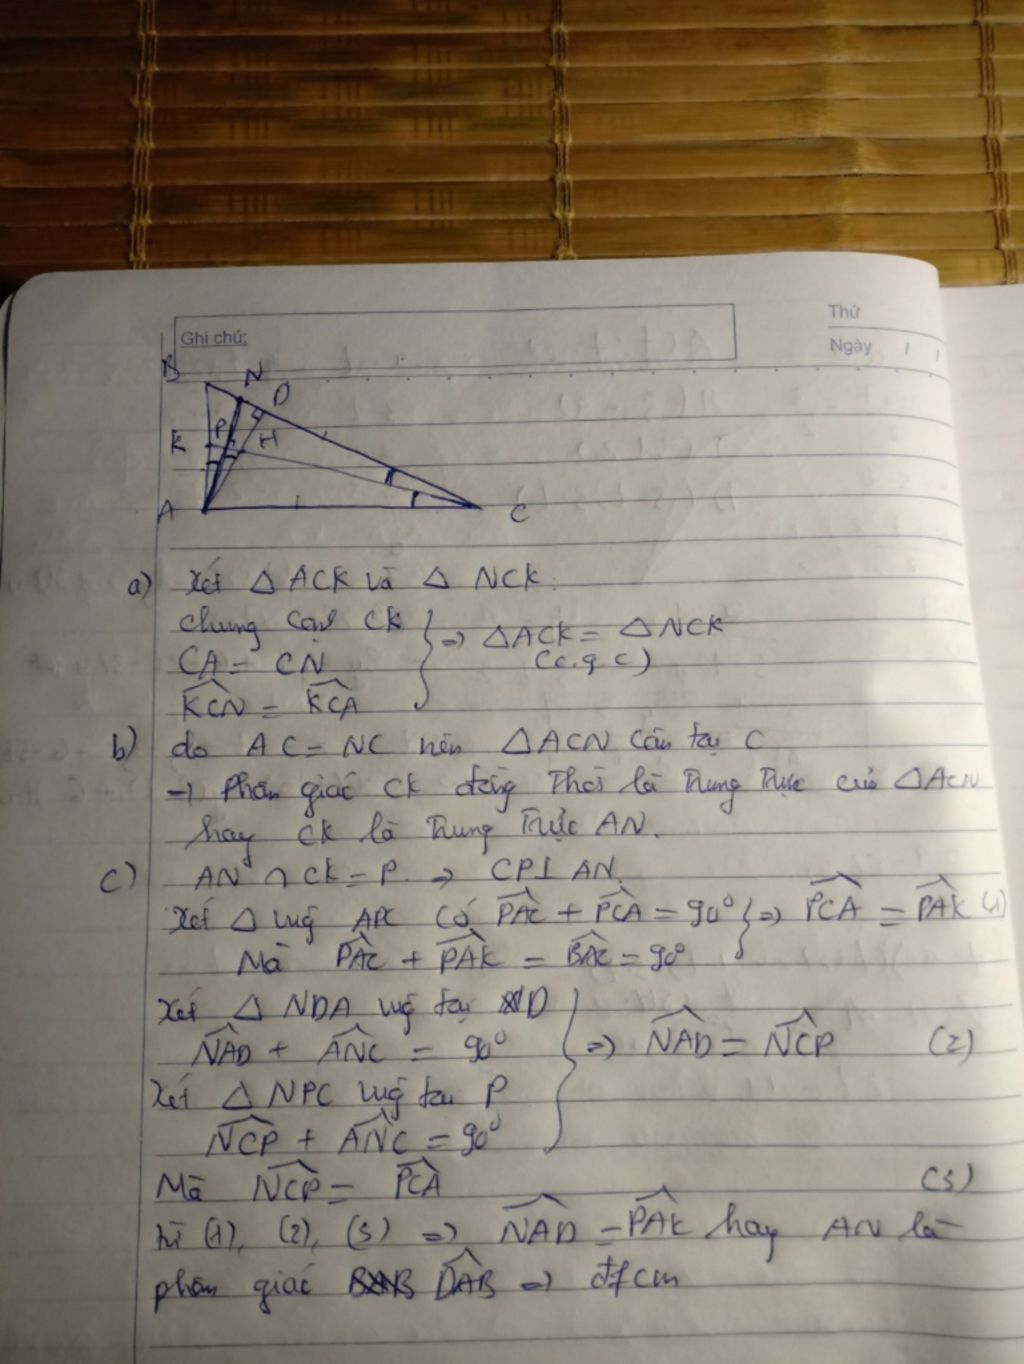 Ghi chú:
Thứ
Ngày / /
B
N
D
K
P
H
A
C
a) Xét △ ACK và △ NCK.
chung cạnh CK
CA = CN
\widehat{KCN} = \widehat{KCA}
} ⇒ △ACK = △NCK
(c.g.c)
b) do AC = NC nên △ACN cân tại C
→ phân giác CK đồng thời là trung trực của △ACN
hay CK là trung trực AN.
c) AN ∩ CK = P. ⇒ CP⊥AN.
Xét △ vuông APC có \widehat{PAC} + \widehat{PCA} = 90° } ⇒ \widehat{PCA} = \widehat{PAK} (1)
Mà \widehat{PAC} + \widehat{PAK} = \widehat{BAC} = 90°
Xét △ NDA vuông tại D
\widehat{NAD} + \widehat{ANC} = 90° } ⇒ \widehat{NAD} = \widehat{NCP} (2)
Xét △ NPC vuông tại P
\widehat{NCP} + \widehat{ANC} = 90°
Mà \widehat{NCP} = \widehat{PCA} (3)
từ (1), (2), (3) ⇒ \widehat{NAD} = \widehat{PAK} hay AN là
phân giác \widehat{DAB} ⇒ đfcm